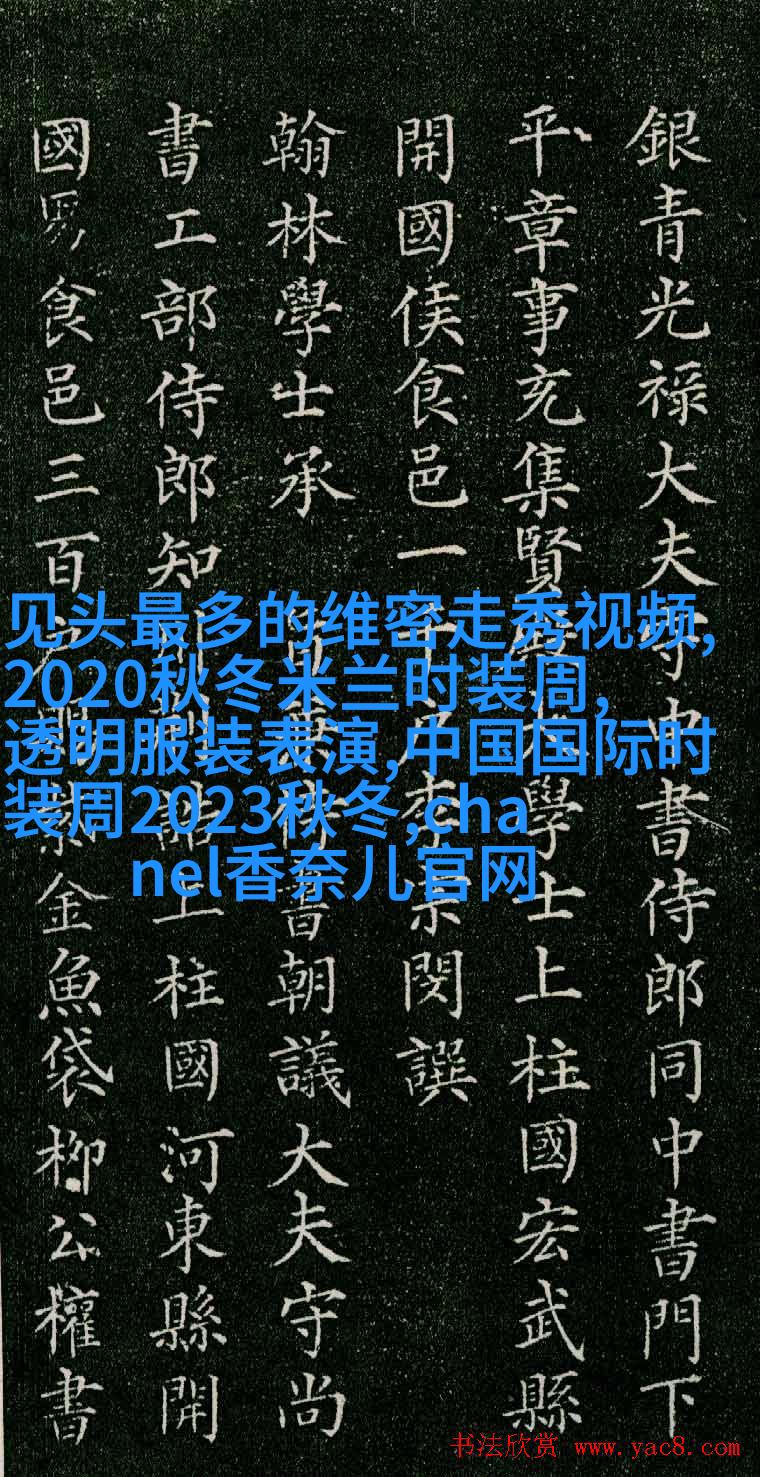 銀青光禄大夫守中書侍郎同中書門下
平章事充集賢殿大學士上柱國宏武縣
開國侯食邑一千户李宗閔譔
翰林學士承旨兼侍書朝議大夫守尚
書工部侍郎知制誥上柱國河東縣開
國男食邑三百户賜紫金魚袋柳公權書
见头最多的维密走秀视频,
2020秋冬米兰时装周,
透明服装表演,中国国际时
装周2023秋冬,cha
nel香奈儿官网
书法欣赏 www.yac8.com